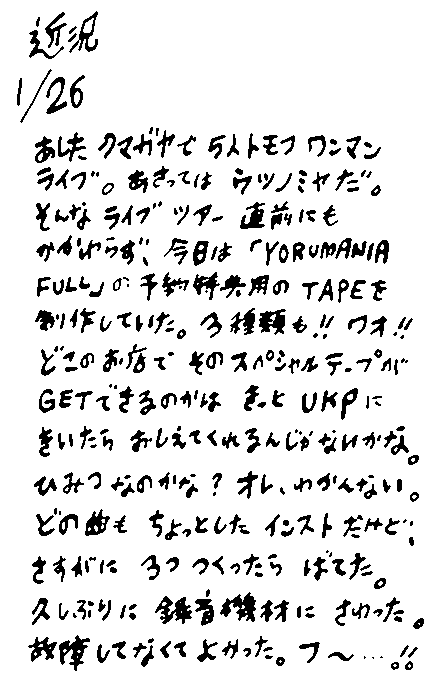 近況
1/26
あした クマガヤで 5人トモフ ワンマン
ライブ。あさっては ウツノミヤだ。
そんな ライブ ツアー 直前にも
かかわらず、今日は「YORUMANIA
FULL」の 予約特典用の TAPEを
制作していた。3種類も!! ワオ!!
どこのお店で そのスペシャルテープが
GETできるのかは きっと UKPに
きいたら おしえてくれるんじゃないかな。
ひみつなのかな? オレ、わかんない。
どの曲も ちょっとした インストだけど、
さすがに 3つ つくったら ばてた。
久しぶりに 録音機材に さわった。
故障してなくてよかった。フ〜…!!